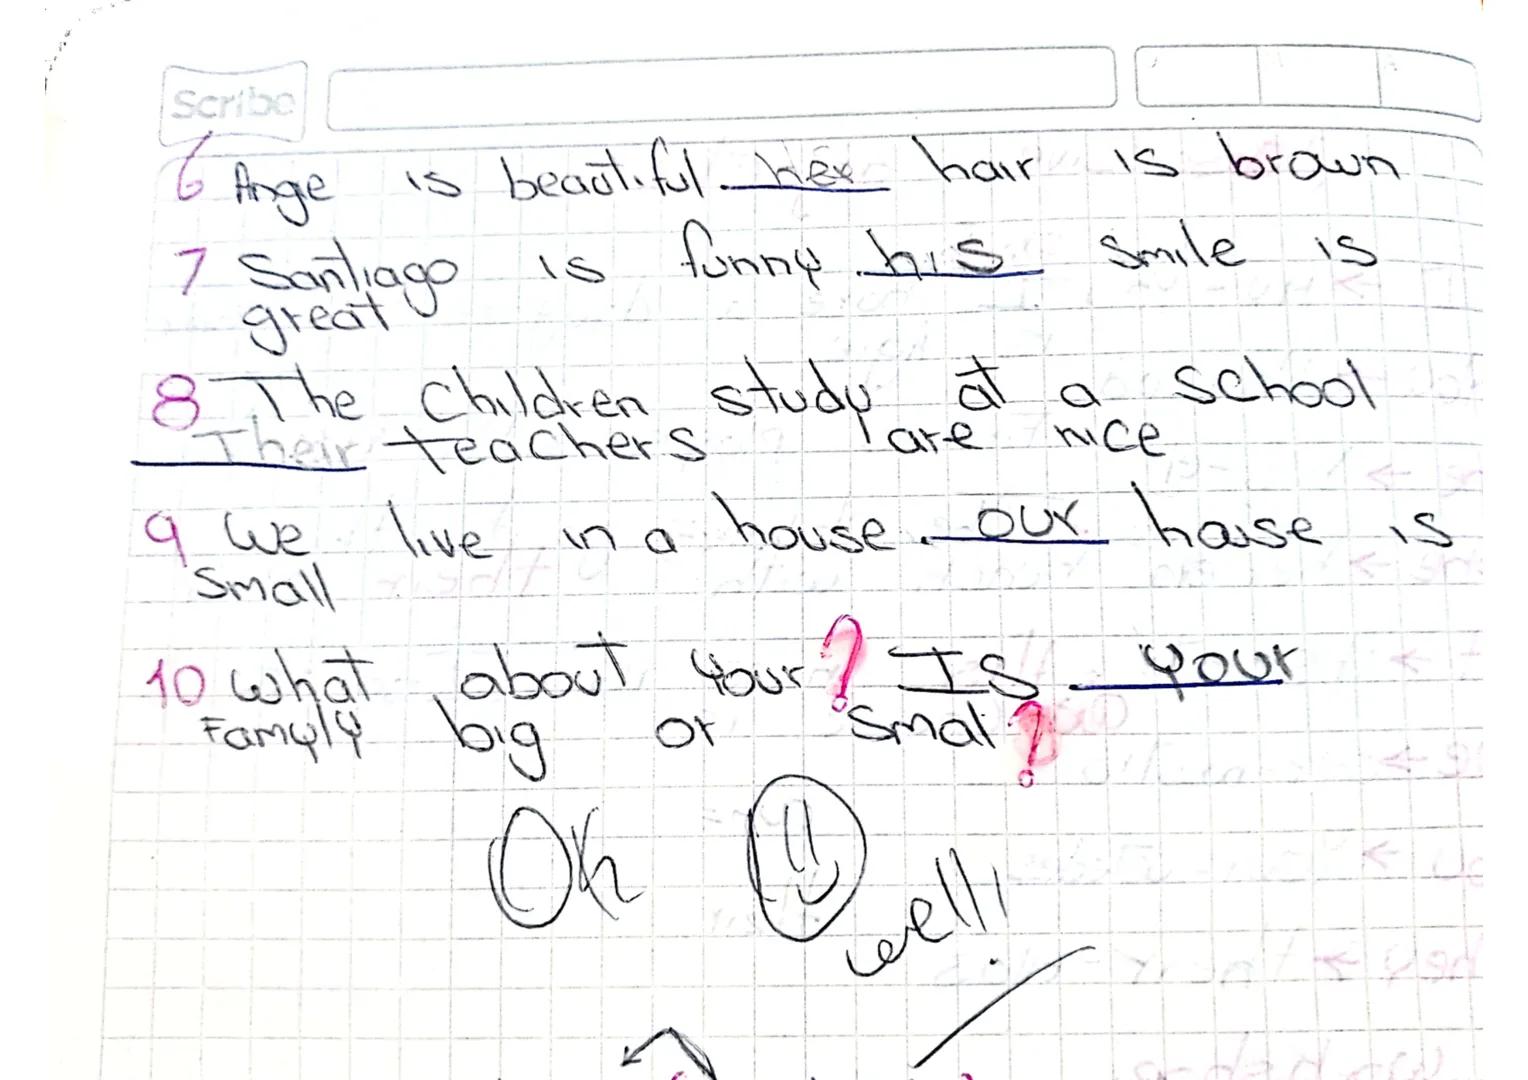 Scribe
6 Ange is beautiful. her hair is brown
7 Santiago is funny. his smile is
great
8 The Children study at a school
Their teachers are nice
9 We live in a house. our house is
Small
10 What about your? Is your
Famyly big or smal?
Ok
well!